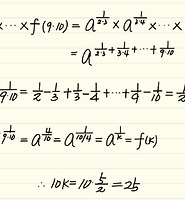 x⋯xf(9·10) = a^{\frac{1}{2·3}} x a^{\frac{1}{3·4}} x⋯x
= a^{\frac{1}{2·3}+\frac{1}{3·4}+⋯+\frac{1}{9·10}}
\frac{1}{9·10} = \frac{1}{2}-\frac{1}{3}+\frac{1}{3}-\frac{1}{4}+⋯+\frac{1}{9}-\frac{1}{10} = \frac{1}{2}
\frac{1}{9·10} = a^{\frac{4}{10}} = a^{\frac{1}{10/4}} = a^{\frac{1}{k}} = f(k)
∴ 10k = 10·\frac{5}{2} = 25